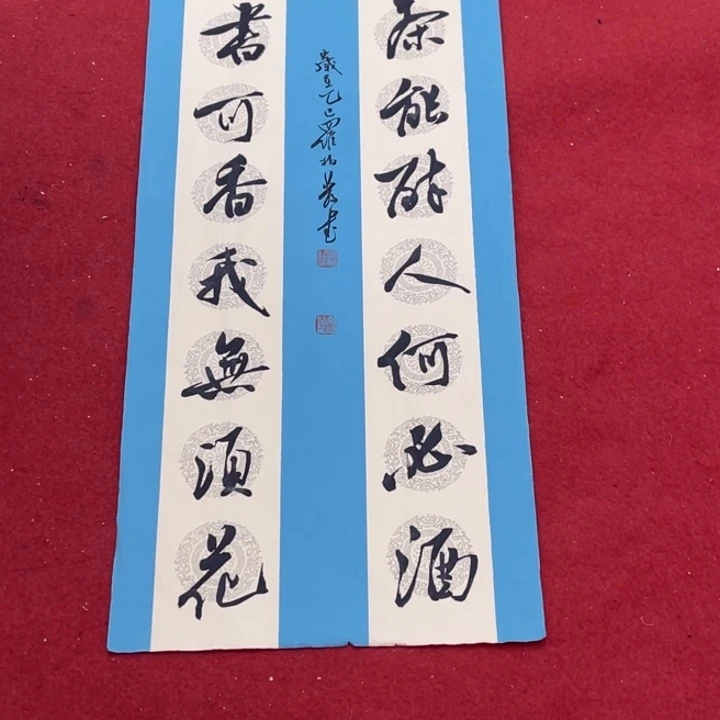 茶能醉人何必酒
書可香我無須花
歲在乙巳羅
書